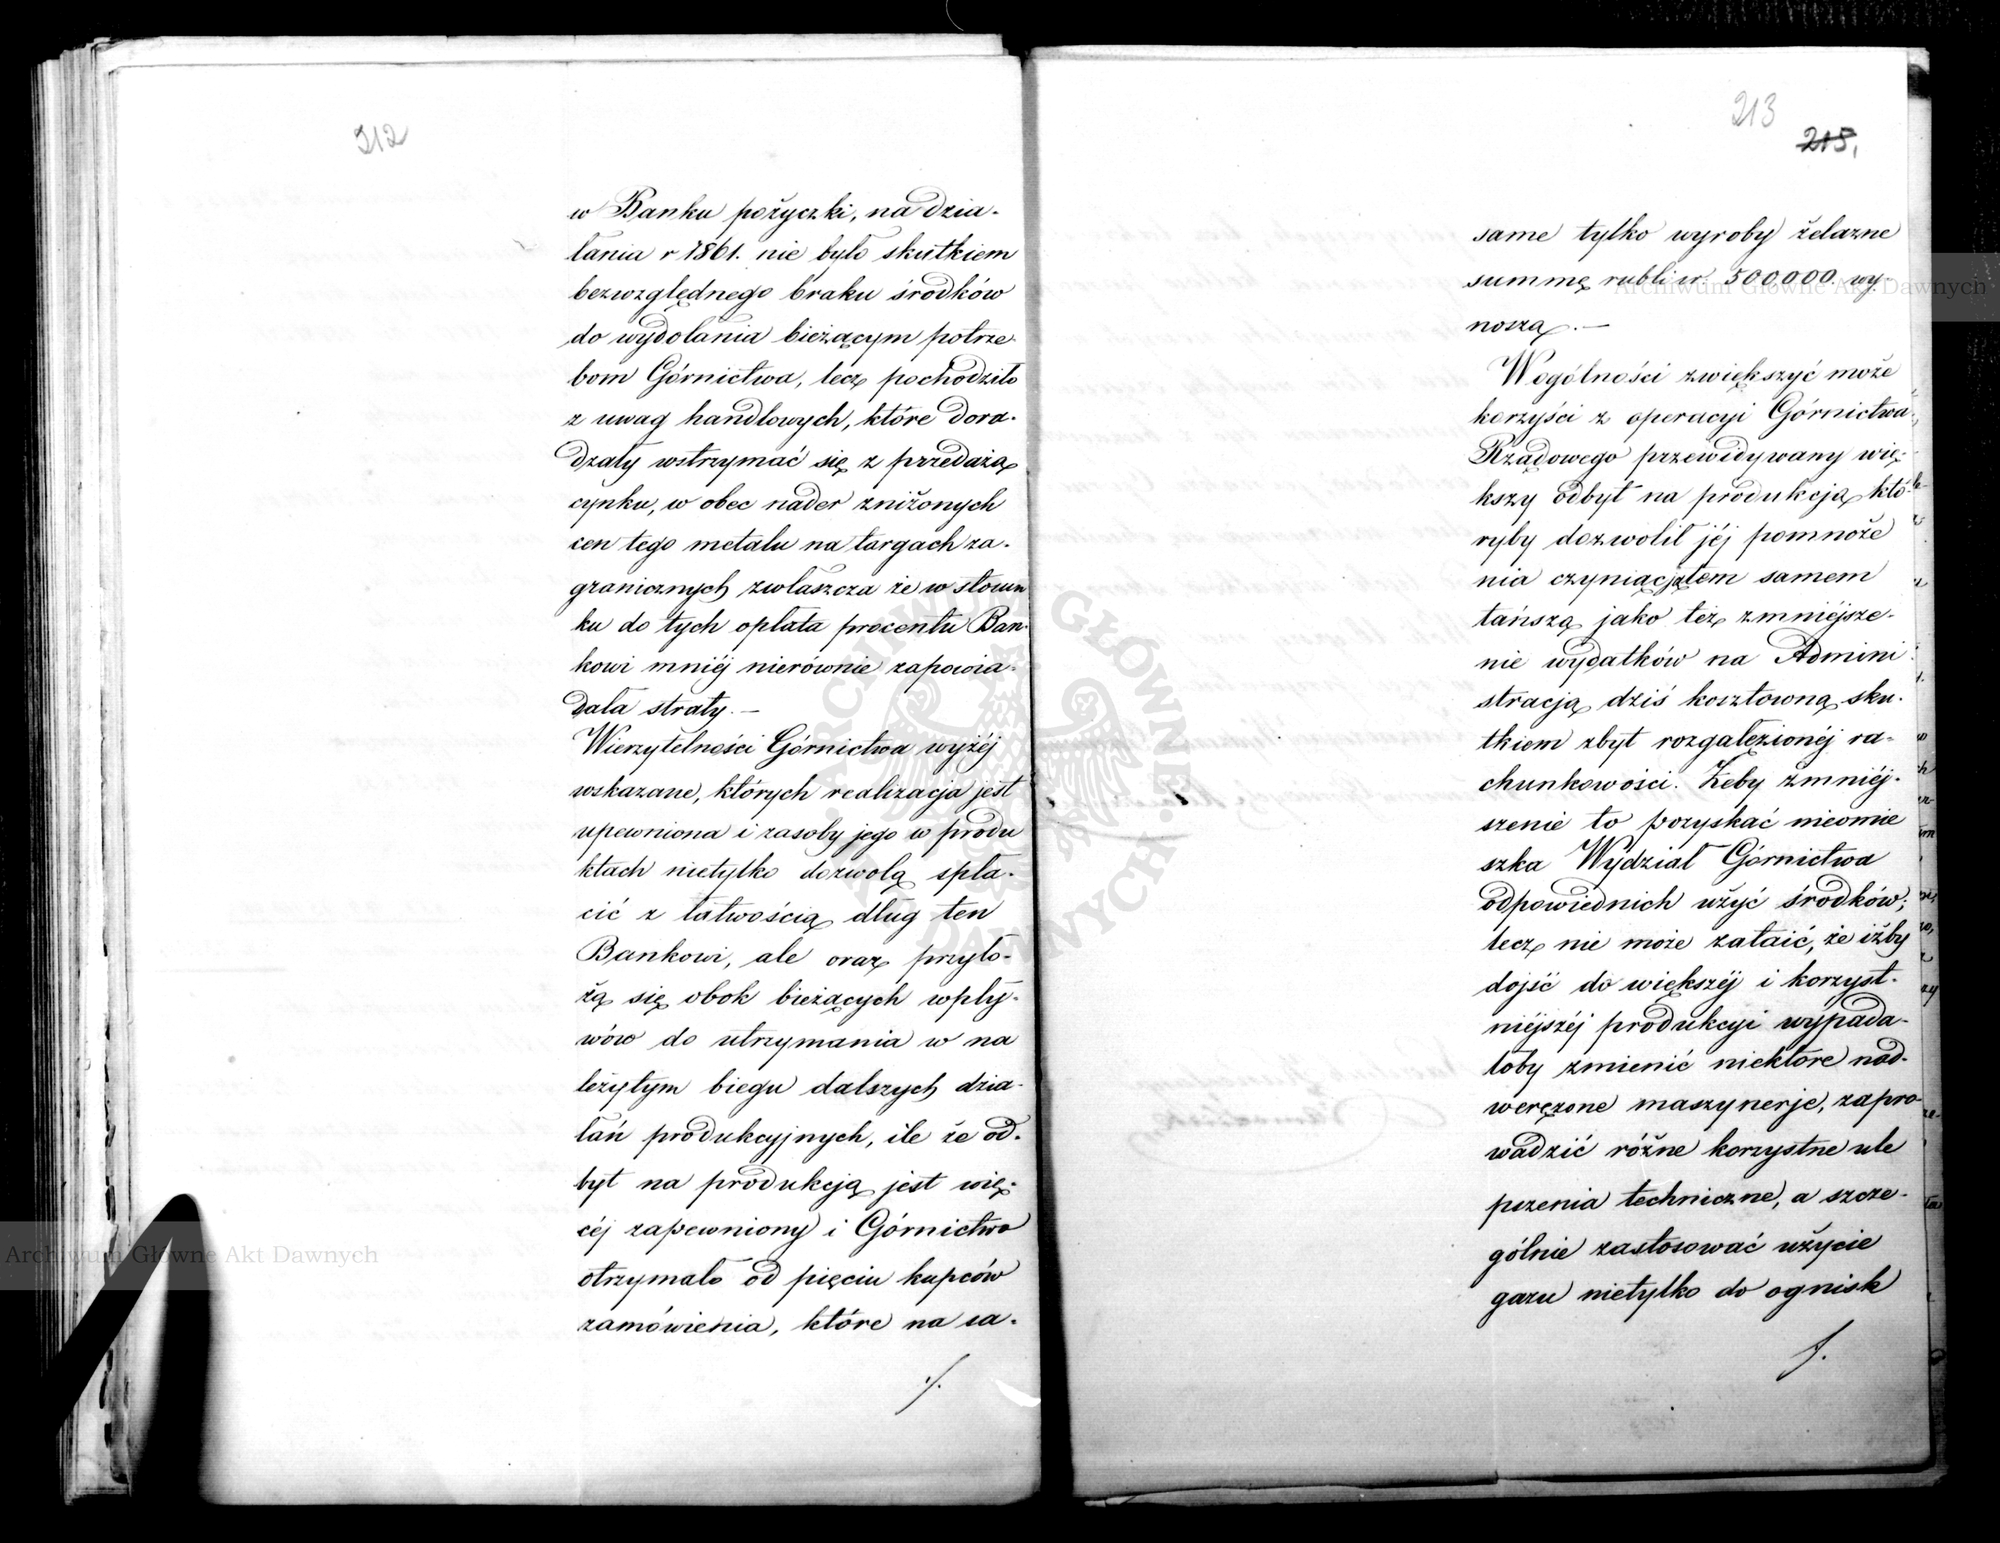 212
w Banku pożyczki, na dzia-
łania r 1861. nie było skutkiem
bezwzględnego braku środków
do wydołania bieżącym potrze-
bom Górnictwa, lecz pochodziło
z uwag handlowych, które dora-
dzały wstrzymać się z przedażą
cynku, w obec nader zniżonych
cen tego metalu na targach za-
granicznych zwłaszcza że w stosun
ku do tych opłata procentu Ban-
kowi mniéj nierównie zapowia-
dała straty. —
Wierzytelności Górnictwa wyżéj
wskazane, których realizacja jest
upewniona i zasoby jego w produ
ktach nietylko dozwolą spła-
cić z łatwością dług ten
Bankowi, ale oraz przyło-
żą się obok bieżących wpły-
wów do utrzymania w na
leżytym biegu dalszych dzia-
łań produkcyjnych, ile że od-
byt na produkcją jest wię-
céj zapewniony i Górnictwo
otrzymało od pięciu kupców
zamówienia, które na sa-
./.
213
215,
same tylko wyroby żelazne
summę rubli sr. 500000. wy-
noszą. —
Wogólności zwiększyć może
korzyści z operacyi Górnictwa
Rządowego przewidywany wię-
kszy odbyt na produkcją któ-
ryby dozwolił jéj pomnoże
nia czyniąc ją tem samem
tańszą jako też zmniejsze-
nie wydatków na Admini
stracją dziś kosztowną sku-
tkiem zbyt rozgałęzionéj ra-
chunkowości. Żeby zmniéj-
szenie to pozyskać nieomie
szka Wydział Górnictwa
odpowiednich użyć środków;
lecz nie może zataić, że iżby
dojść do większéj i korzyst-
niéjszéj produkcyi wypada-
łoby zmienić niektóre nad-
werężone maszynerje, zapro
wadzić różne korzystne ule
pszenia techniczne, a szcze-
gólnie zastosować użycie
gazu nietylko do ognisk
./.
Archiwum Główne Akt Dawnych
Archiwum Główne Akt Dawnych
ARCHIWUM GŁÓWNE AKT DAWNYCH